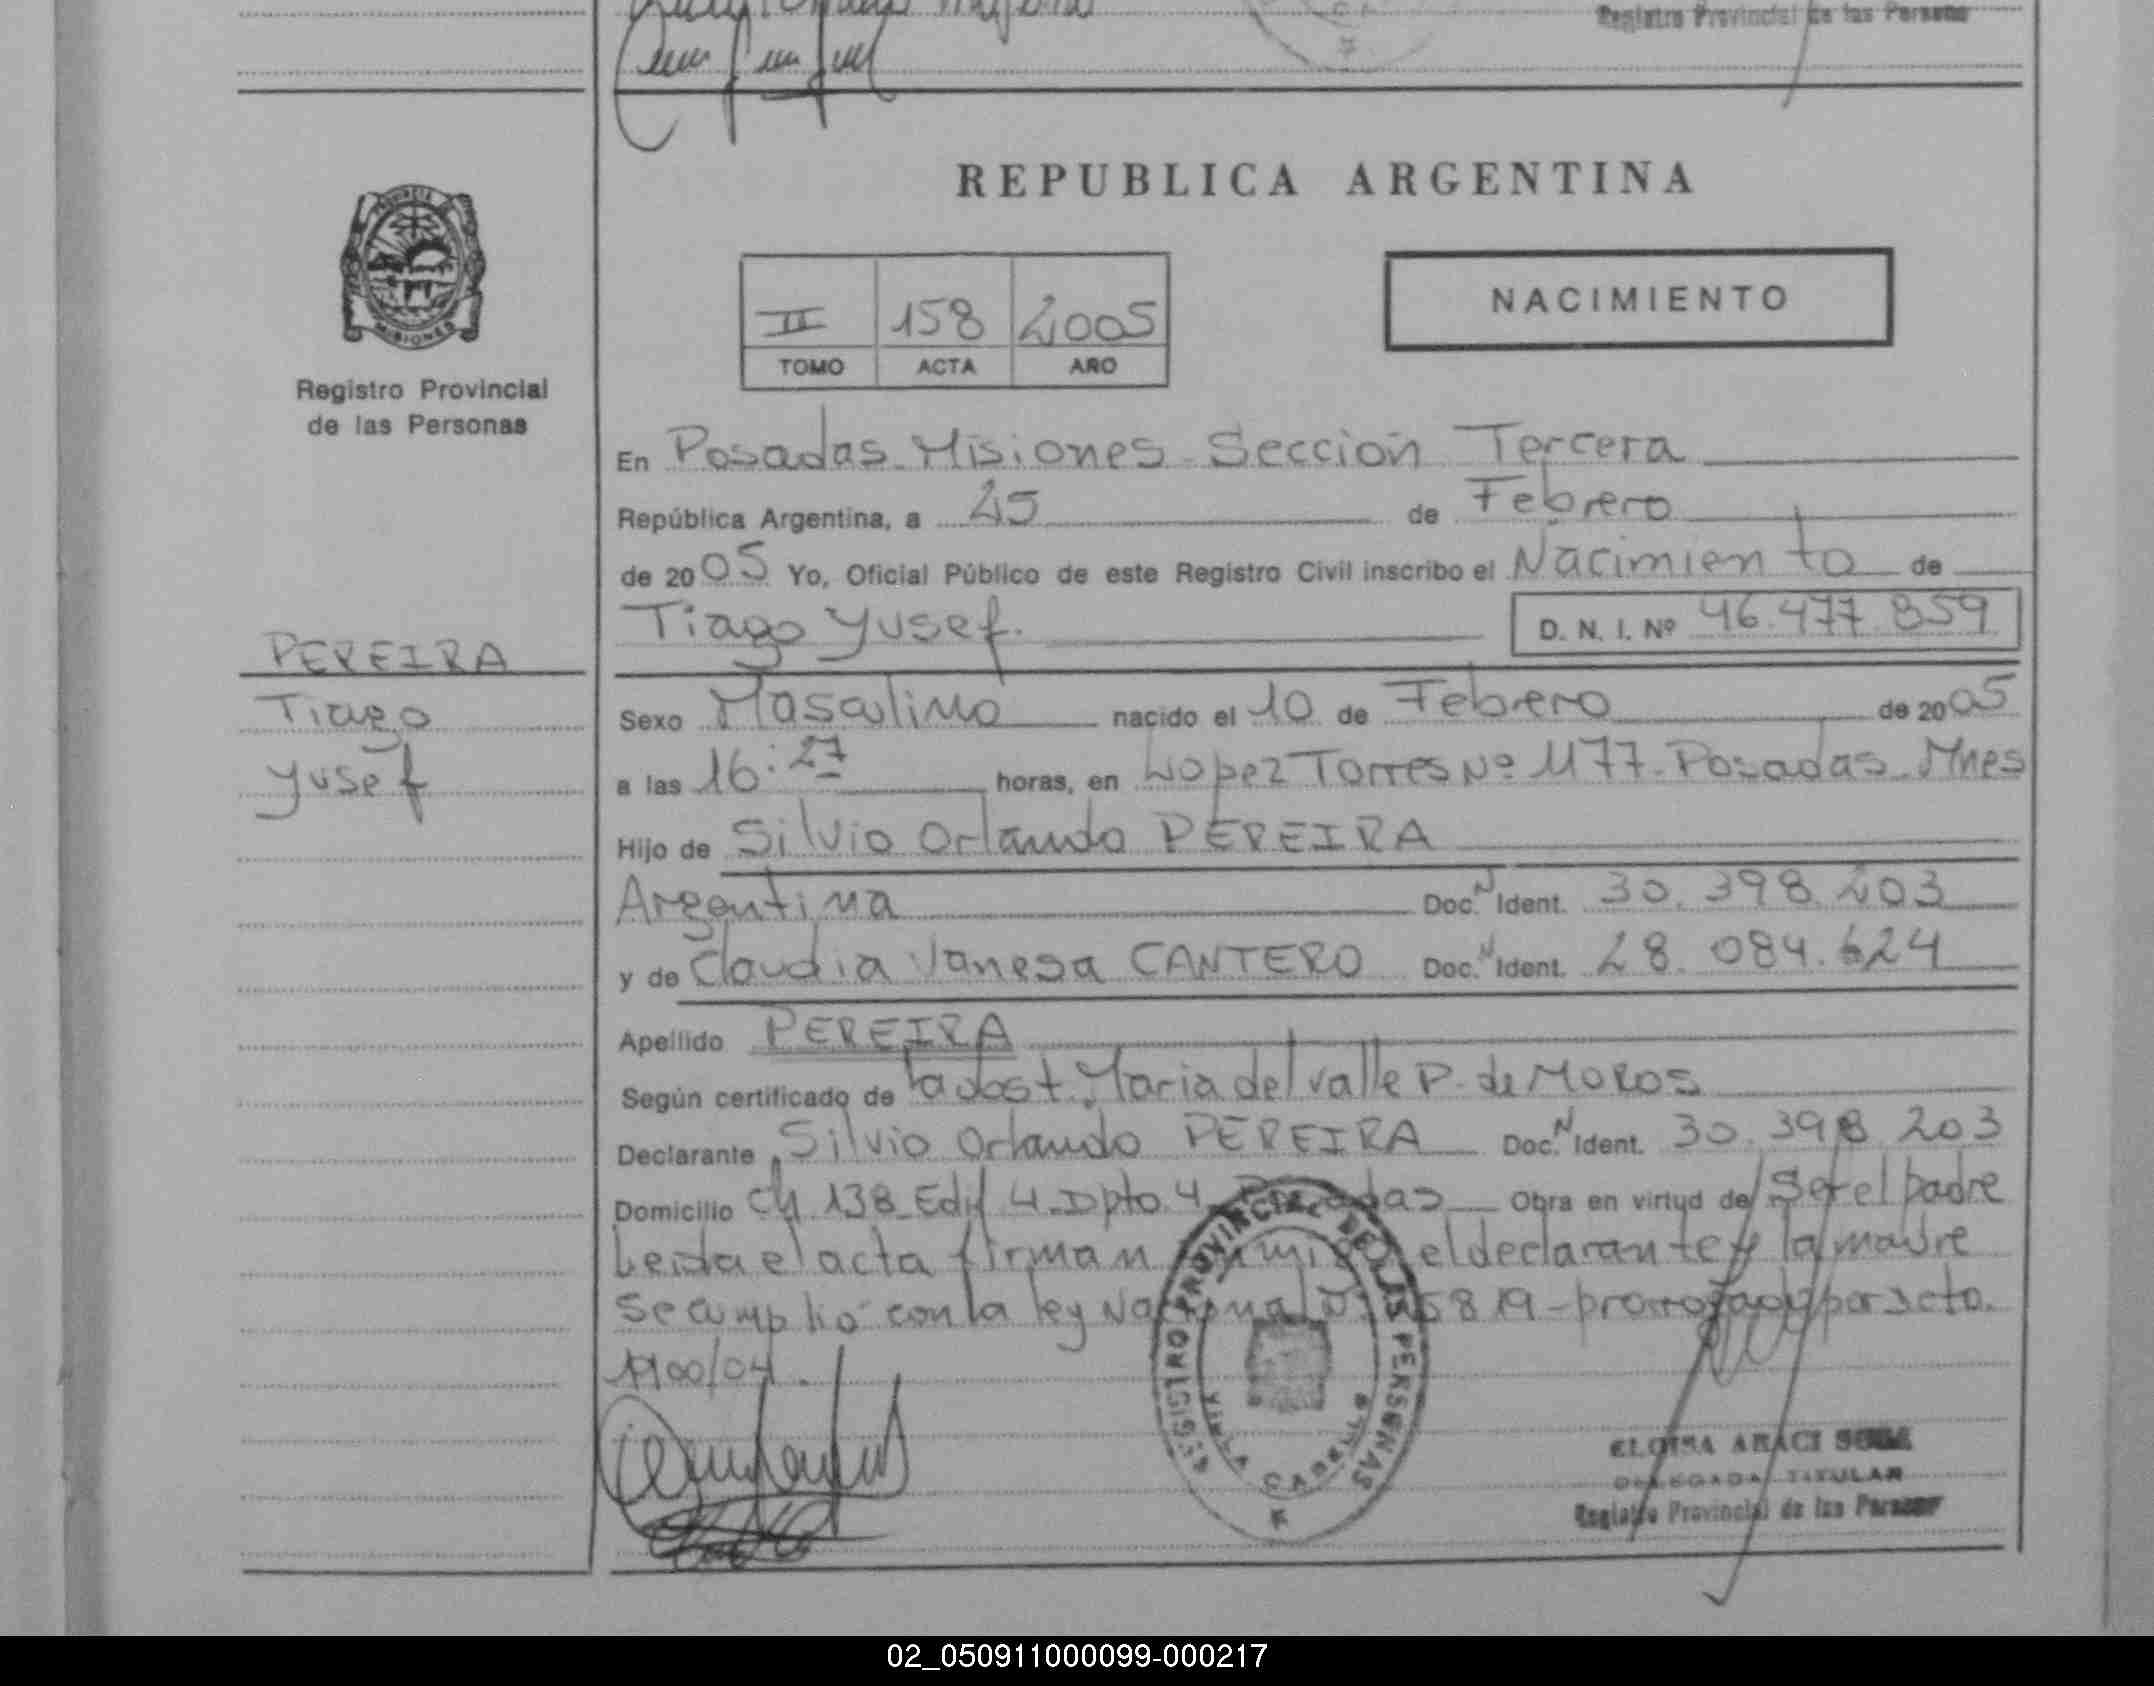 Registro Provincial de las Persona
REPUBLICA ARGENTINA
PROVINCIA DE
MISIONES
Registro Provincial
de las Personas
II 158 2005
TOMO ACTA AÑO
NACIMIENTO
En Posadas Misiones Sección Tercera
República Argentina, a 25 de Febrero
de 2005 Yo, Oficial Público de este Registro Civil inscribo el Nacimiento de
Tiago Yusef. D. N. I. Nº 46.477.859
PEREIRA
Tiago
Yusef
Sexo Masculino nacido el 10 de Febrero de 2005
a las 16:27 horas, en Lopez Torres Nº 1177 - Posadas Mnes
Hijo de Silvio Orlando PEREIRA
Argentina Doc. N Ident. 30.398.203
y de Claudia Vanesa CANTERO Doc. N Ident. 28.084.624
Apellido PEREIRA
Según certificado de la obst. Maria del Valle P. de MOROS
Declarante Silvio Orlando PEREIRA Doc. N Ident. 30.398.203
Domicilio Ch 138 Edif 4 Dpto. 4 Posadas Obra en virtud de Ser el padre
Leida el acta firman conmigo el declarante y la madre
Se cumplió con la ley Nacional Nº 25819 - prorrogado por Dcto.
1100/04.
REGISTRO PROVINCIAL DE LAS PERSONAS
VILLA CABELLO
ELOISA ARACI SOSA
DELEGADA TITULAR
Registro Provincial de las Personas
02_050911000099-000217